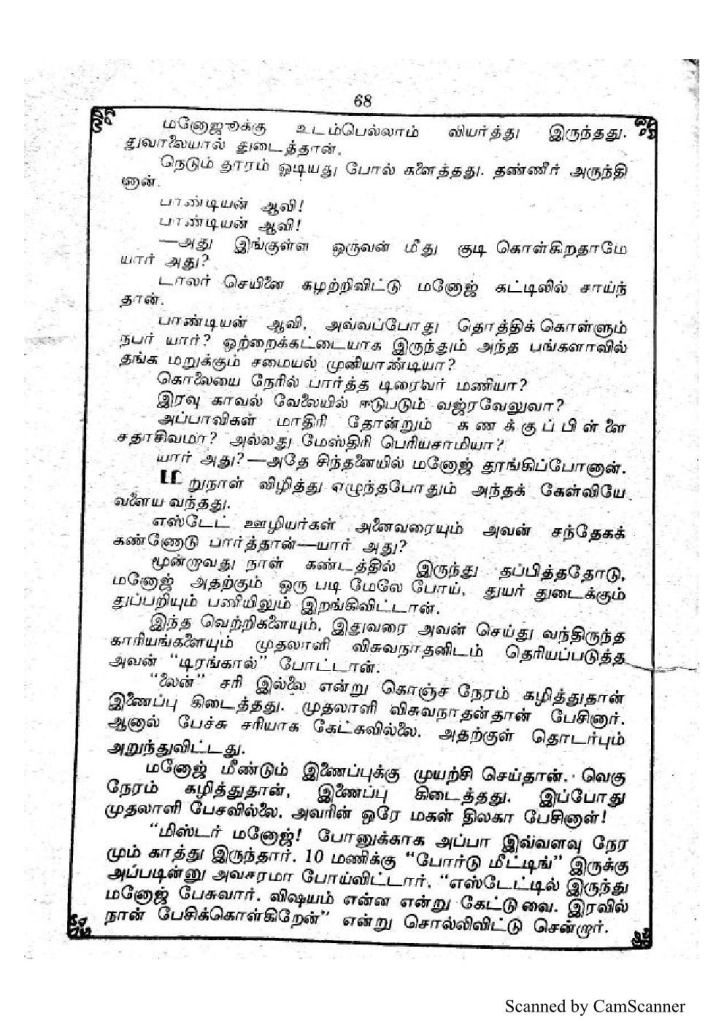 68
மனோஜூக்கு உடம்பெல்லாம் வியர்த்து இருந்தது.
துவாலையால் துடைத்தான்.
நெடும் தூரம் ஓடியது போல் களைத்தது. தண்ணீர் அருந்தி
னான்.
பாண்டியன் ஆவி!
பாண்டியன் ஆவி!
—அது இங்குள்ள ஒருவன் மீது குடி கொள்கிறதாமே
யார் அது?
டாலர் செயினை கழற்றிவிட்டு மனோஜ் கட்டிலில் சாய்ந்
தான்.
பாண்டியன் ஆவி, அவ்வப்போது தொத்திக் கொள்ளும்
நபர் யார்? ஒற்றைக்கட்டையாக இருந்தும் அந்த பங்களாவில்
தங்க மறுக்கும் சமையல் முனியாண்டியா?
கொலையை நேரில் பார்த்த டிரைவர் மணியா?
இரவு காவல் வேலையில் ஈடுபடும் வஜ்ரவேலுவா?
அப்பாவிகள் மாதிரி தோன்றும் கணக்குப்பிள்ளை
சதாசிவமா? அல்லது மேஸ்திரி பெரியசாமியா?
யார் அது?—அதே சிந்தனையில் மனோஜ் தூங்கிப்போனான்.
மறுநாள் விழித்து எழுந்தபோதும் அந்தக் கேள்வியே
வளைய வந்தது.
எஸ்டேட் ஊழியர்கள் அனைவரையும் அவன் சந்தேகக்
கண்ணோடு பார்த்தான்—யார் அது?
மூன்றாவது நாள் கண்டத்தில் இருந்து தப்பித்ததோடு,
மனோஜ் அதற்கும் ஒரு படி மேலே போய், துயர் துடைக்கும்
துப்பறியும் பணியிலும் இறங்கிவிட்டான்.
இந்த வெற்றிகளையும், இதுவரை அவன் செய்து வந்திருந்த
காரியங்களையும் முதலாளி விசுவநாதனிடம் தெரியப்படுத்த
அவன் “டிரங்கால்” போட்டான்.
“லைன்” சரி இல்லை என்று கொஞ்ச நேரம் கழித்துதான்
இணைப்பு கிடைத்தது. முதலாளி விசுவநாதன்தான் பேசினார்.
ஆனால் பேச்சு சரியாக கேட்கவில்லை. அதற்குள் தொடர்பும்
அறுந்துவிட்டது.
மனோஜ் மீண்டும் இணைப்புக்கு முயற்சி செய்தான். வெகு
நேரம் கழித்துதான், இணைப்பு கிடைத்தது. இப்போது
முதலாளி பேசவில்லை. அவரின் ஒரே மகள் திலகா பேசினாள்!
“மிஸ்டர் மனோஜ்! போனுக்காக அப்பா இவ்வளவு நேர
மும் காத்து இருந்தார். 10 மணிக்கு “போர்டு மீட்டிங்” இருக்கு
அப்படின்னு அவசரமா போய்விட்டார். “எஸ்டேட்டில் இருந்து
மனோஜ் பேசுவார். விஷயம் என்ன என்று கேட்டு வை. இரவில்
நான் பேசிக்கொள்கிறேன்” என்று சொல்லிவிட்டு சென்றார்.
Scanned by CamScanner